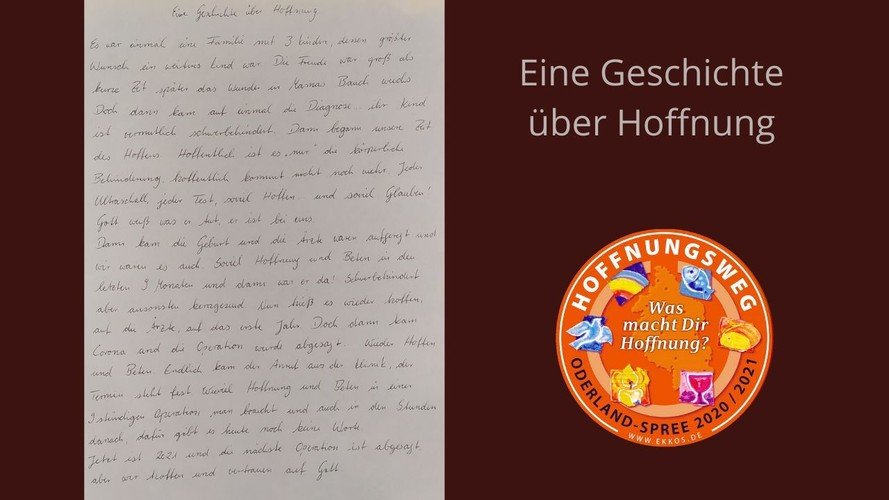 Eine Geschichte über Hoffnung
Es war einmal eine Familie mit 3 Kinder, dessen größter
Wunsch ein weiteres Kind war. Die Freude war groß als
kurze Zeit später das Wunder in Mamas Bauch wuchs
Doch dann kam auf einmal die Diagnose... ihr Kind
ist vermutlich schwerbehindert. Dann begann unsere Zeit
des Hoffens. Hoffentlich ist es „nur" die körperliche
Behinderung, hoffentlich kommt nicht noch mehr. Jeder
Ultraschall, jeder Test, soviel Hoffen... und soviel Glauben!
Gott weiß was er tut, er ist bei uns.
Dann kam die Geburt und die Ärzte waren aufgeregt und
wir waren es auch. Soviel Hoffnung und Beten in den
letzten 9 Monaten und dann war er da! Schwerbehindert
aber ansonsten kerngesund. Nun hieß es wieder hoffen,
auf die Ärzte, auf das erste Jahr. Doch dann kam
Corona und die Operation wurde abgesagt. Wieder Hoffen
und Beten. Endlich kam der Anruf aus der Klinik, der
Termin steht fest. Wieviel Hoffnung und Beten in einer
stündigen Operation, man braucht und auch in den Stunden
danach, dafür gibt es heute noch keine Worte.
Jetzt ist 2021 und die nächste Operation ist abgesagt
aber wir hoffen und vertrauen auf Gott.
Eine Geschichte
über Hoffnung
HOFFNUNGSWEG
Was
macht Dir
Hoffnung?
ODERLAND-SPREE 2020 / 2021
WWW.EKKOS.DE